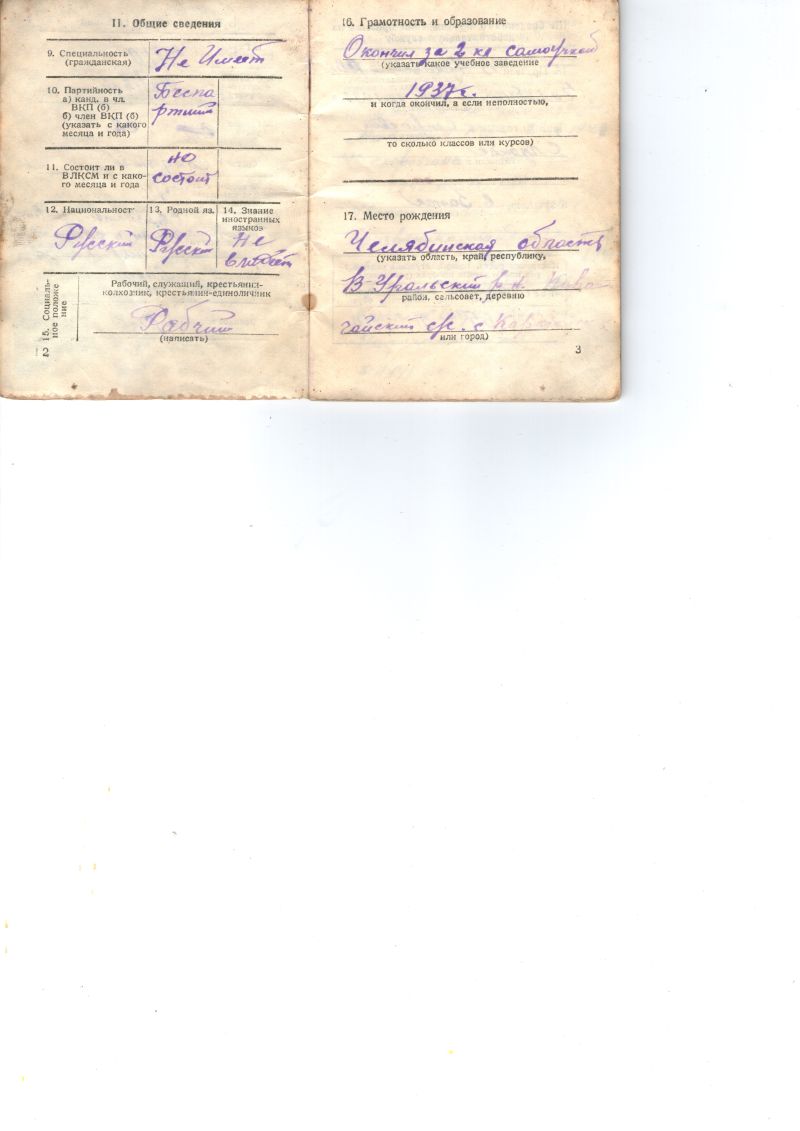 II. Общие сведения
9. Специальность
(гражданская)
Не Имеет
10. Партийность
а) канд. в чл.
ВКП (б)
б) член ВКП (б)
(указать с какого
месяца и года)
Беспа
ртий
11. Состоит ли в
ВЛКСМ и с како-
го месяца и года
но
состоит
12. Национальност
Русский
13. Родной яз.
Русский
14. Знание
иностранных
языков
Не
владеет
15. Социаль-
ное положе
ние
Рабочий, служащий, крестьянин-
колхозник, крестьянин-единоличник
Рабчий
(написать)
2
16. Грамотность и образование
Окончил за 2 кл самоучкой
(указать какое учебное заведение
1937 г.
и когда окончил, а если неполностью,
то сколько классов или курсов)
17. Место рождения
Челябинская область
(указать область, край, республику,
В-Уральский р-н.
район, сельсовет, деревню
с/с. с
или город)
3